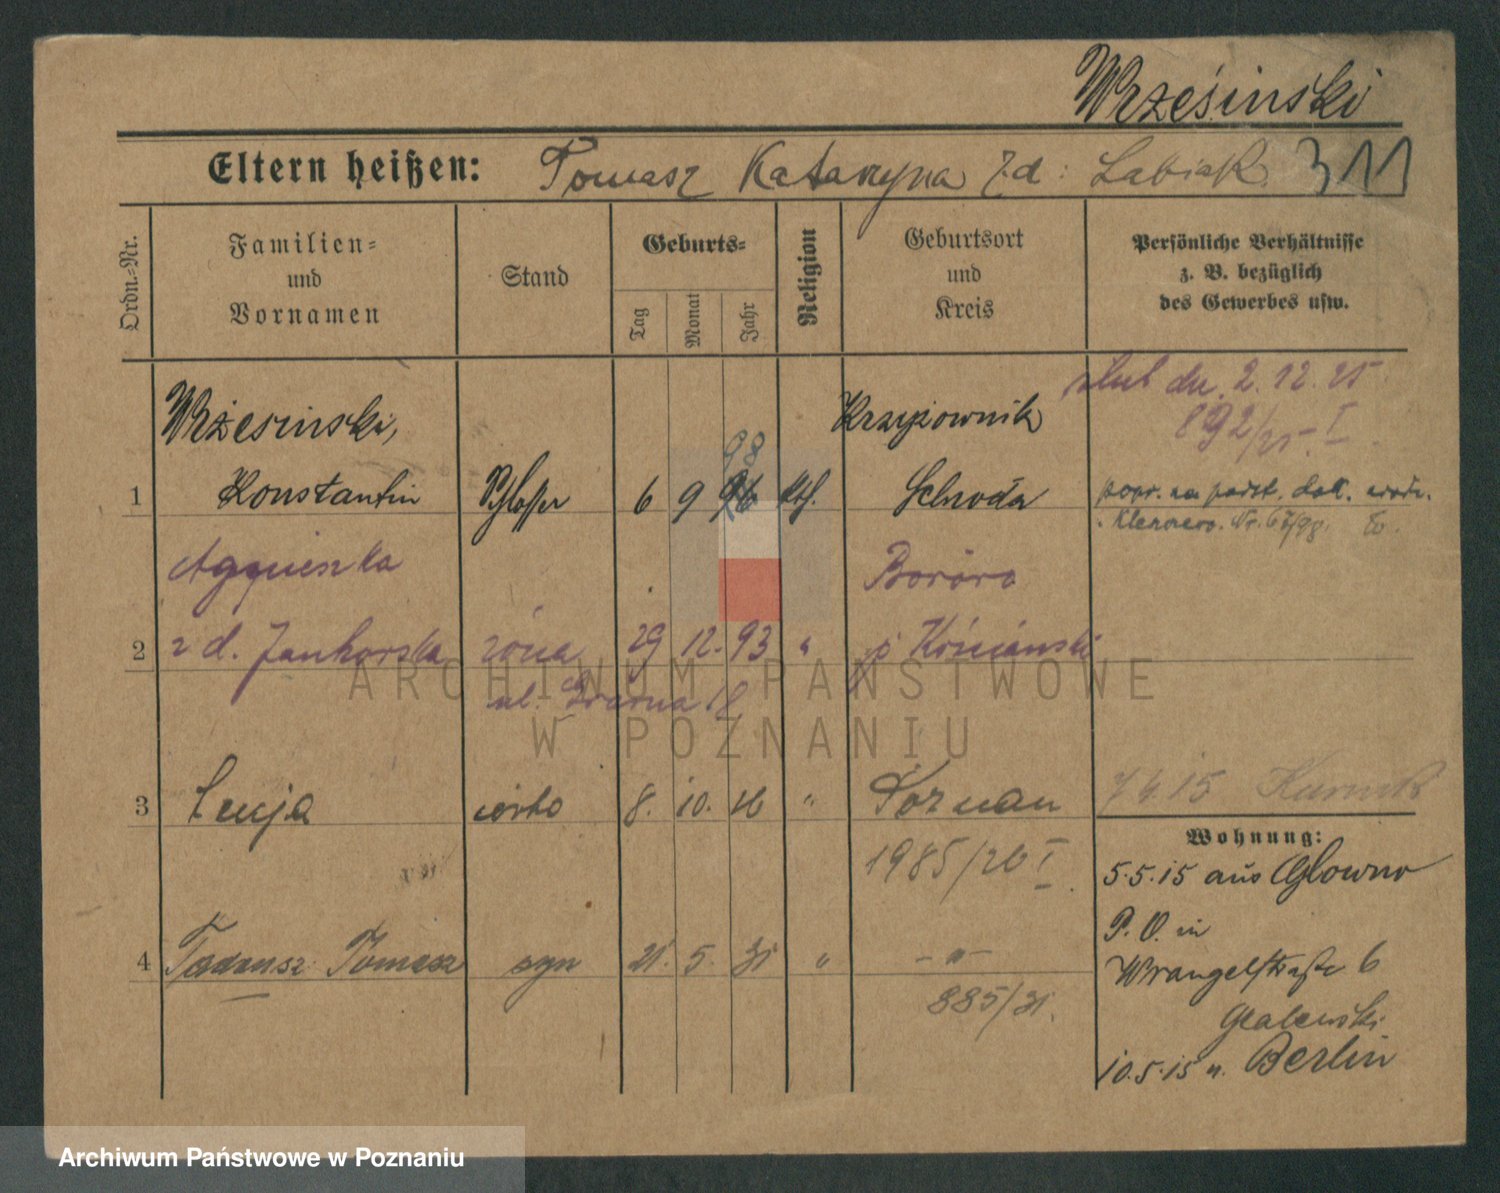 Wrześinski
Eltern heißen: Tomasz Katarzyna z.d: Labiak 311
Ordn.-Nr.
Familien-
und
Vornamen
Stand
Geburts-
Tag
Monat
Jahr
Religion
Geburtsort
und
Kreis
Persönliche Verhältnisse
z. B. bezüglich
des Gewerbes usw.
ślub dn. 2.12.25
892/25 I
Wrzesinski,
Krzyżownik
98
1 Konstantin Schlosser 6 9 96 kth. Schroda
popr. na podst. dok. urodz.
Nr. 67/98.
Agnieszka
Borowo
2 z d. Jankowska żona 29 12. 93 " p. Kościański
ul. 18
ARCHIWUM PAŃSTWOWE
W POZNANIU
3 Łucja córka 8. 10. 26 " Poznań
7.4.15 Kurnik
1985/26 I
Wohnung:
5.5.15 aus Glowno
P. O. in
4 Tadeusz Tomasz syn 21. 5. 31 " - " -
Wrangelstraße 6
885/31.
Galewski
10.5.15 n. Berlin
Archiwum Państwowe w Poznaniu